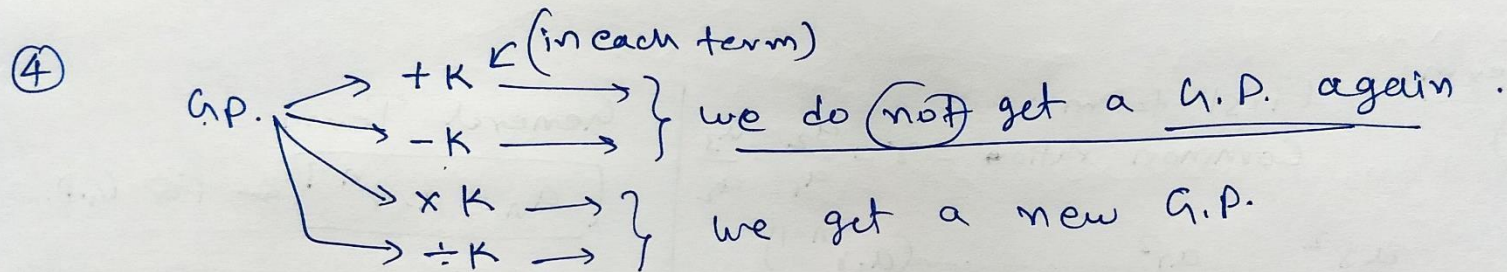 ④
(in each term)
G.P. + K } we do not get a G.P. again.
- K
× K } we get a new G.P.
÷ K